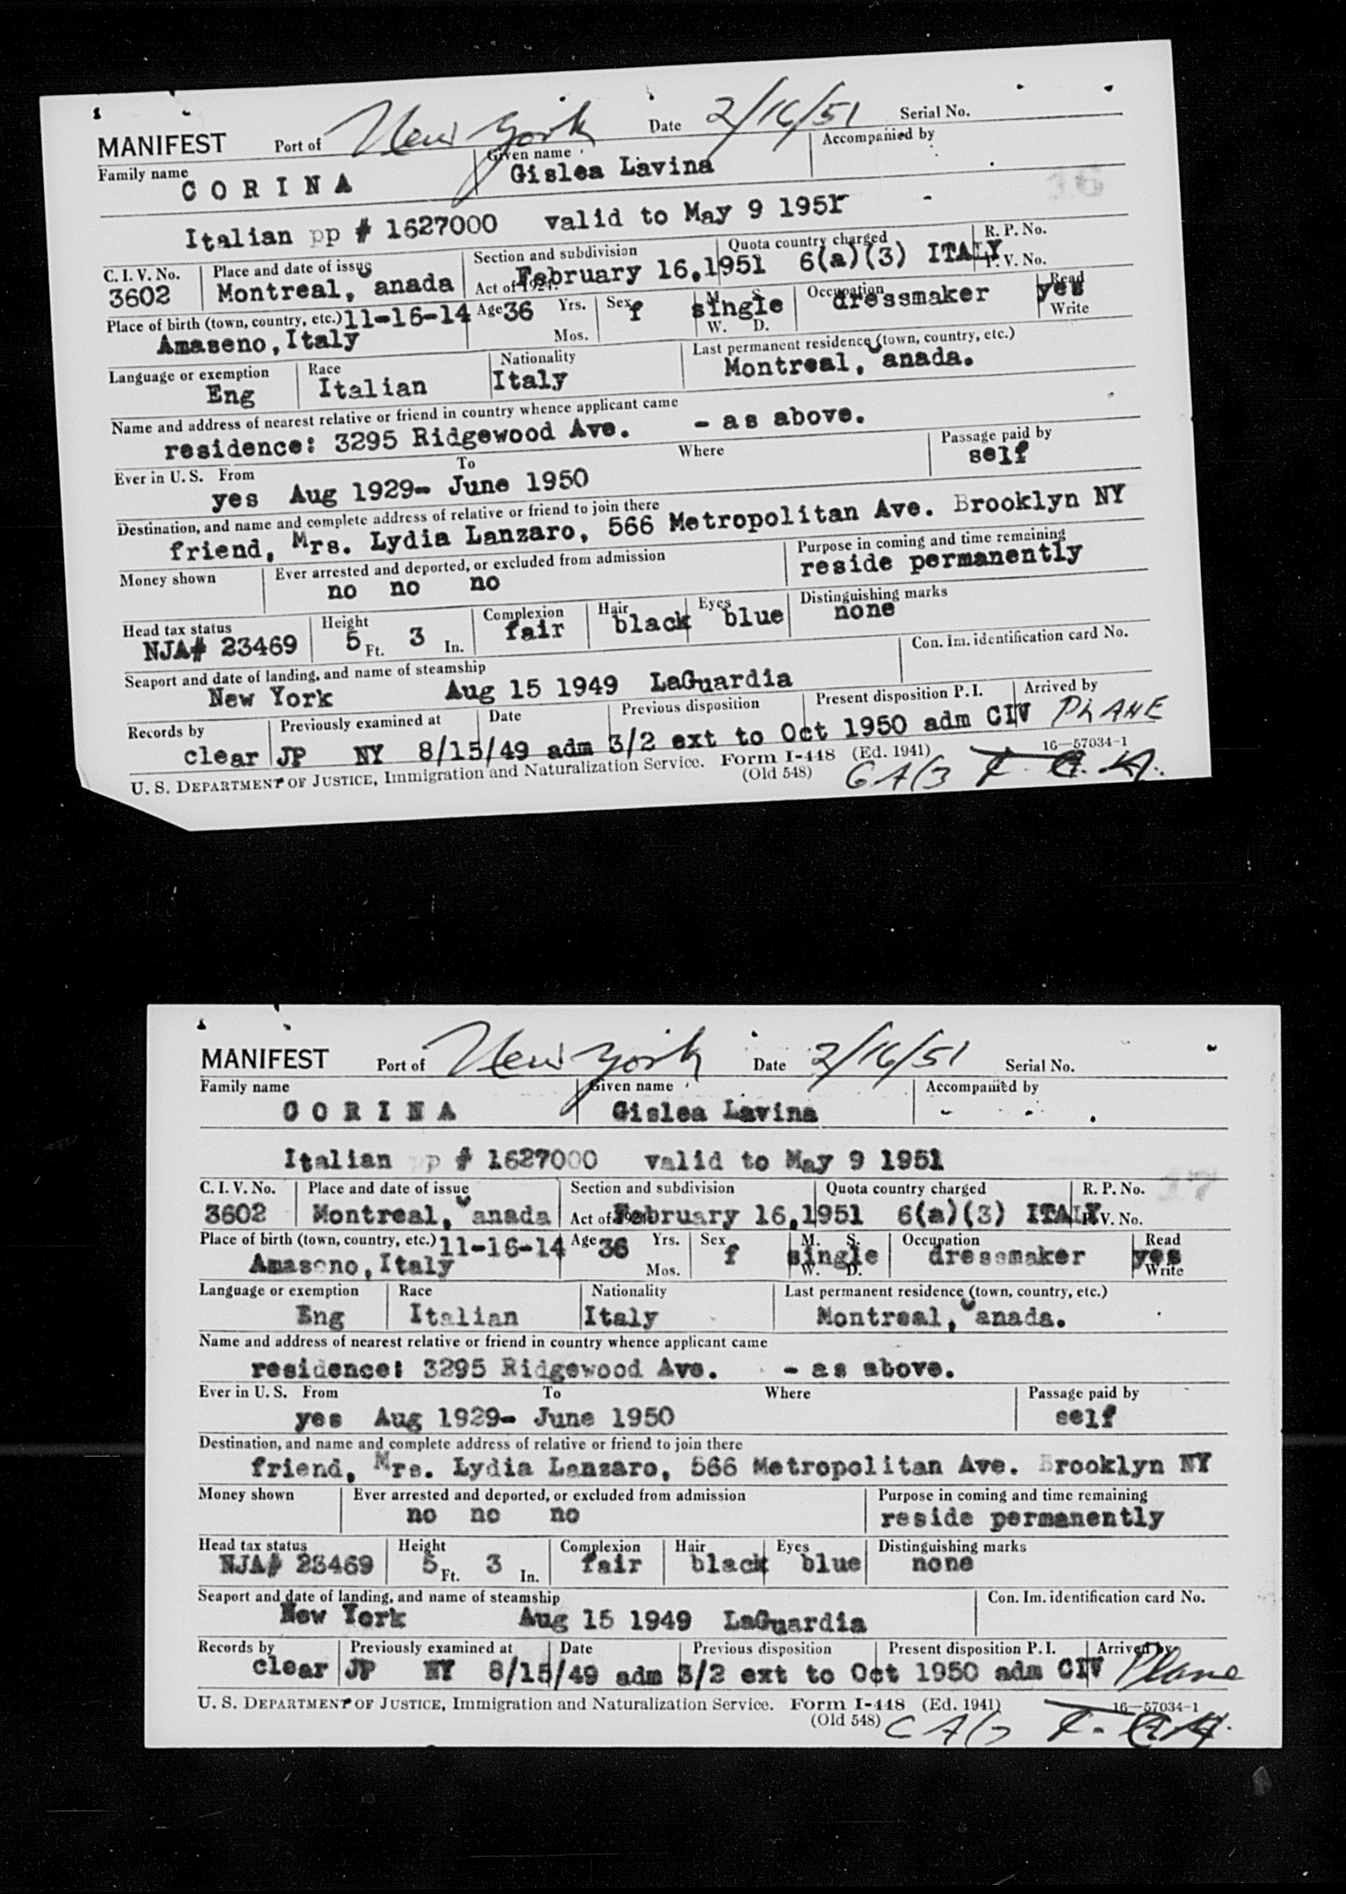 MANIFEST Port of New York Date 2/16/51 Serial No.
Family name Given name Accompanied by
CORINA Gislea Lavina
16
Italian pp # 1627000 valid to May 9 1951
C. I. V. No. Place and date of issue Section and subdivision Quota country charged R. P. No.
3602 Montreal, Canada Act of 1924. February 16,1951 6(a)(3) ITALY P. V. No.
Place of birth (town, country, etc.) 11-16-14 Age 36 Yrs. Sex f M. S. single Occupation dressmaker Read yes
Amaseno, Italy Mos. W. D. Write
Language or exemption Race Nationality Last permanent residence (town, country, etc.)
Eng Italian Italy Montreal, Canada.
Name and address of nearest relative or friend in country whence applicant came
residence: 3295 Ridgewood Ave. - as above.
Ever in U. S. From To Where Passage paid by
yes Aug 1929- June 1950 self
Destination, and name and complete address of relative or friend to join there
friend, Mrs. Lydia Lanzaro, 566 Metropolitan Ave. Brooklyn NY
Money shown Ever arrested and deported, or excluded from admission Purpose in coming and time remaining
no no no reside permanently
Head tax status Height Complexion Hair Eyes Distinguishing marks
NJA# 23469 5 Ft. 3 In. fair black blue none
Seaport and date of landing, and name of steamship Con. Im. identification card No.
New York Aug 15 1949 LaGuardia
Records by Previously examined at Date Previous disposition Present disposition P. I. Arrived by
clear JP NY 8/15/49 adm 3/2 ext to Oct 1950 adm CIV PLANE
U. S. DEPARTMENT OF JUSTICE, Immigration and Naturalization Service. Form I-448 (Ed. 1941) 16—57034-1
(Old 548)
MANIFEST Port of New York Date 2/16/51 Serial No.
Family name Given name Accompanied by
CORINA Gislea Lavina
Italian pp # 1627000 valid to May 9 1951
17
C. I. V. No. Place and date of issue Section and subdivision Quota country charged R. P. No.
3602 Montreal, Canada Act of 1924. February 16,1951 6(a)(3) ITALY P. V. No.
Place of birth (town, country, etc.) 11-16-14 Age 36 Yrs. Sex f M. S. single Occupation dressmaker Read yes
Amaseno, Italy Mos. W. D. Write
Language or exemption Race Nationality Last permanent residence (town, country, etc.)
Eng Italian Italy Montreal, Canada.
Name and address of nearest relative or friend in country whence applicant came
residence: 3295 Ridgewood Ave. - as above.
Ever in U. S. From To Where Passage paid by
yes Aug 1929- June 1950 self
Destination, and name and complete address of relative or friend to join there
friend, Mrs. Lydia Lanzaro, 566 Metropolitan Ave. Brooklyn NY
Money shown Ever arrested and deported, or excluded from admission Purpose in coming and time remaining
no no no reside permanently
Head tax status Height Complexion Hair Eyes Distinguishing marks
NJA# 23469 5 Ft. 3 In. fair black blue none
Seaport and date of landing, and name of steamship Con. Im. identification card No.
New York Aug 15 1949 LaGuardia
Records by Previously examined at Date Previous disposition Present disposition P. I. Arrived by
clear JP NY 8/15/49 adm 3/2 ext to Oct 1950 adm CIV Plane
U. S. DEPARTMENT OF JUSTICE, Immigration and Naturalization Service. Form I-448 (Ed. 1941) 16—57034-1
(Old 548)